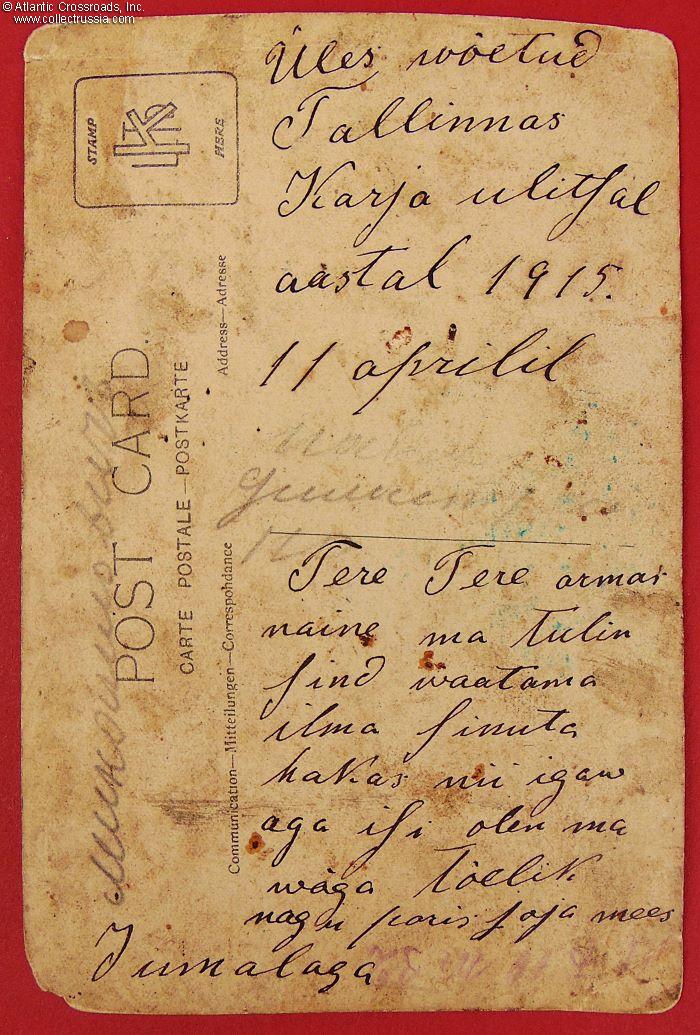 © Atlantic Crossroads, Inc.
www.collectrussia.com
STAMP HERE
POST CARD.
CARTE POSTALE—POSTKARTE
Address—Adresse
Communication—Mitteilungen—Correspohdance
Üles wõetud
Tallinnas
Karja ulitsal
aastal 1915.
11 aprilil
Tere Tere armas
naine ma tulin
sind waatama
ilma sinuta
hakas nii igaw
aga isi olen ma
wäga tõelik
nagu paris soja mees
Jumalaga